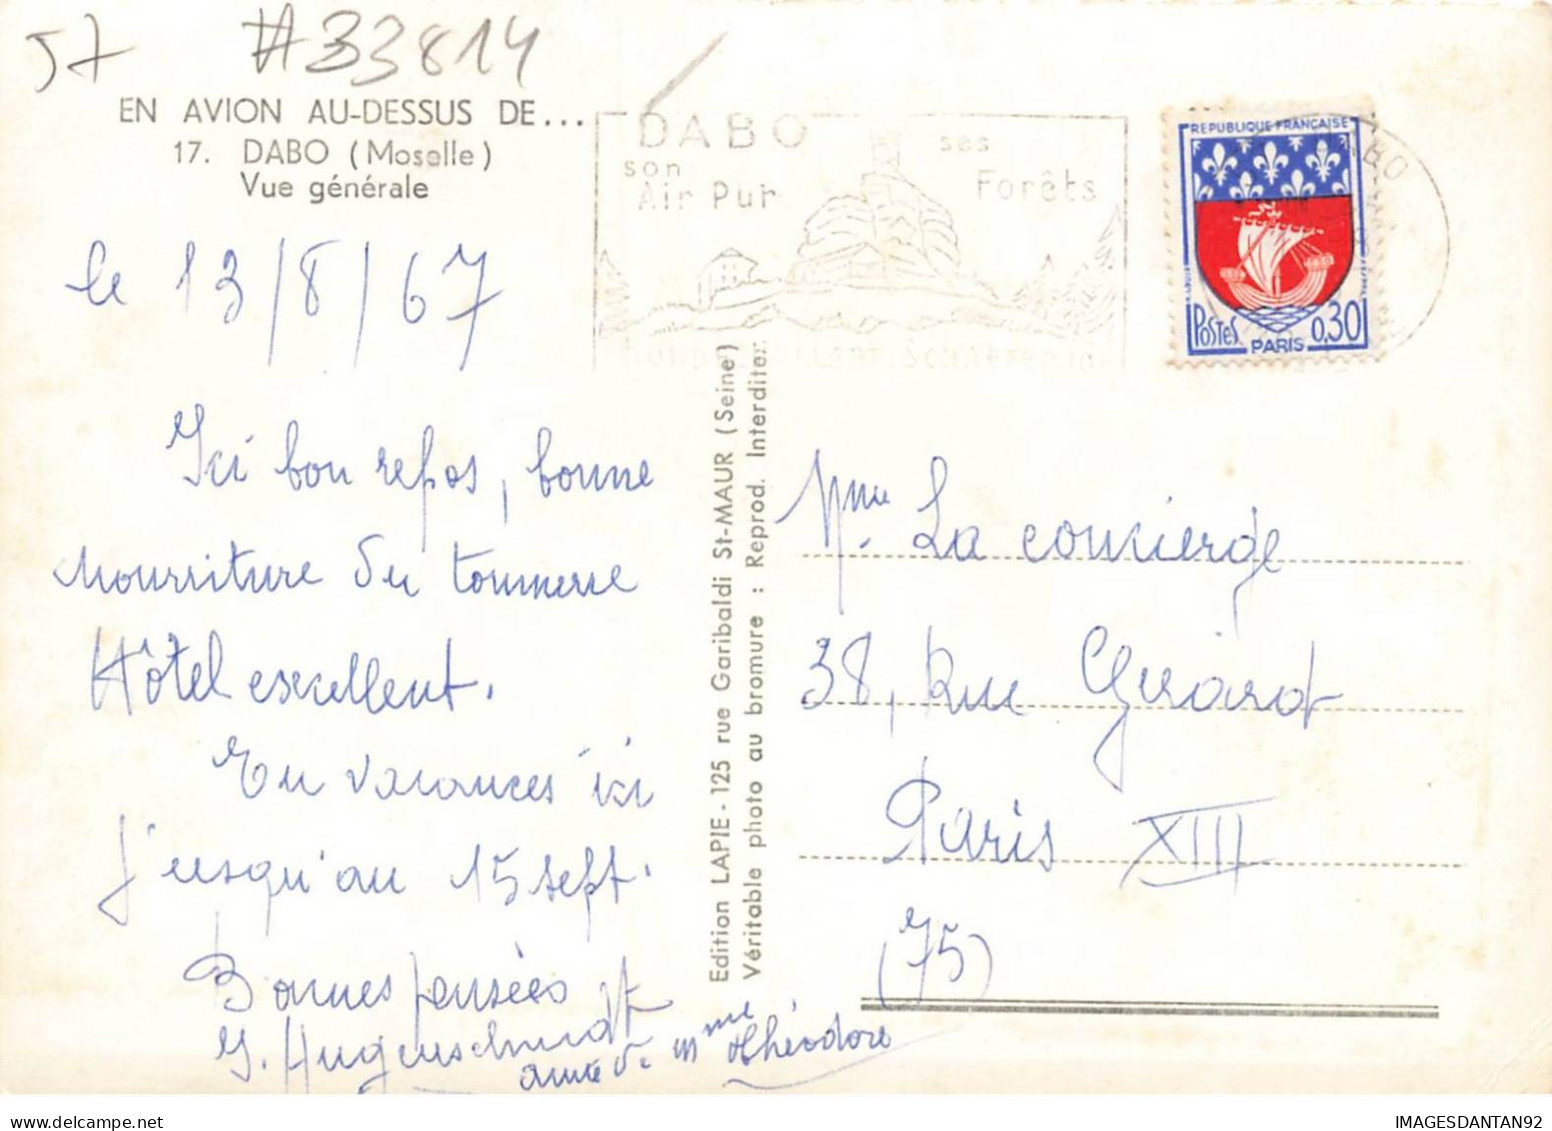 57 #33814
EN AVION AU-DESSUS DE...
17. DABO (Moselle)
Vue générale
DABO
son
Air Pur
ses
Forêts
REPUBLIQUE FRANCAISE
POSTES
0,30
PARIS
le 13/8/67
Ici bon repos, bonne
nourriture du tonnerre
Hôtel excellent.
En vacances ici
j'usqu'au 15 sept.
Bonnes pensées
amie de Mme Théodore
Edition LAPIE - 125 rue Garibaldi St-MAUR (Seine)
Véritable photo au bromure : Reprod. Interdite.
Mme La concierge
38, Rue Gérard
Paris XIII
(75)
delcampe.net
IMAGESDANTAN92